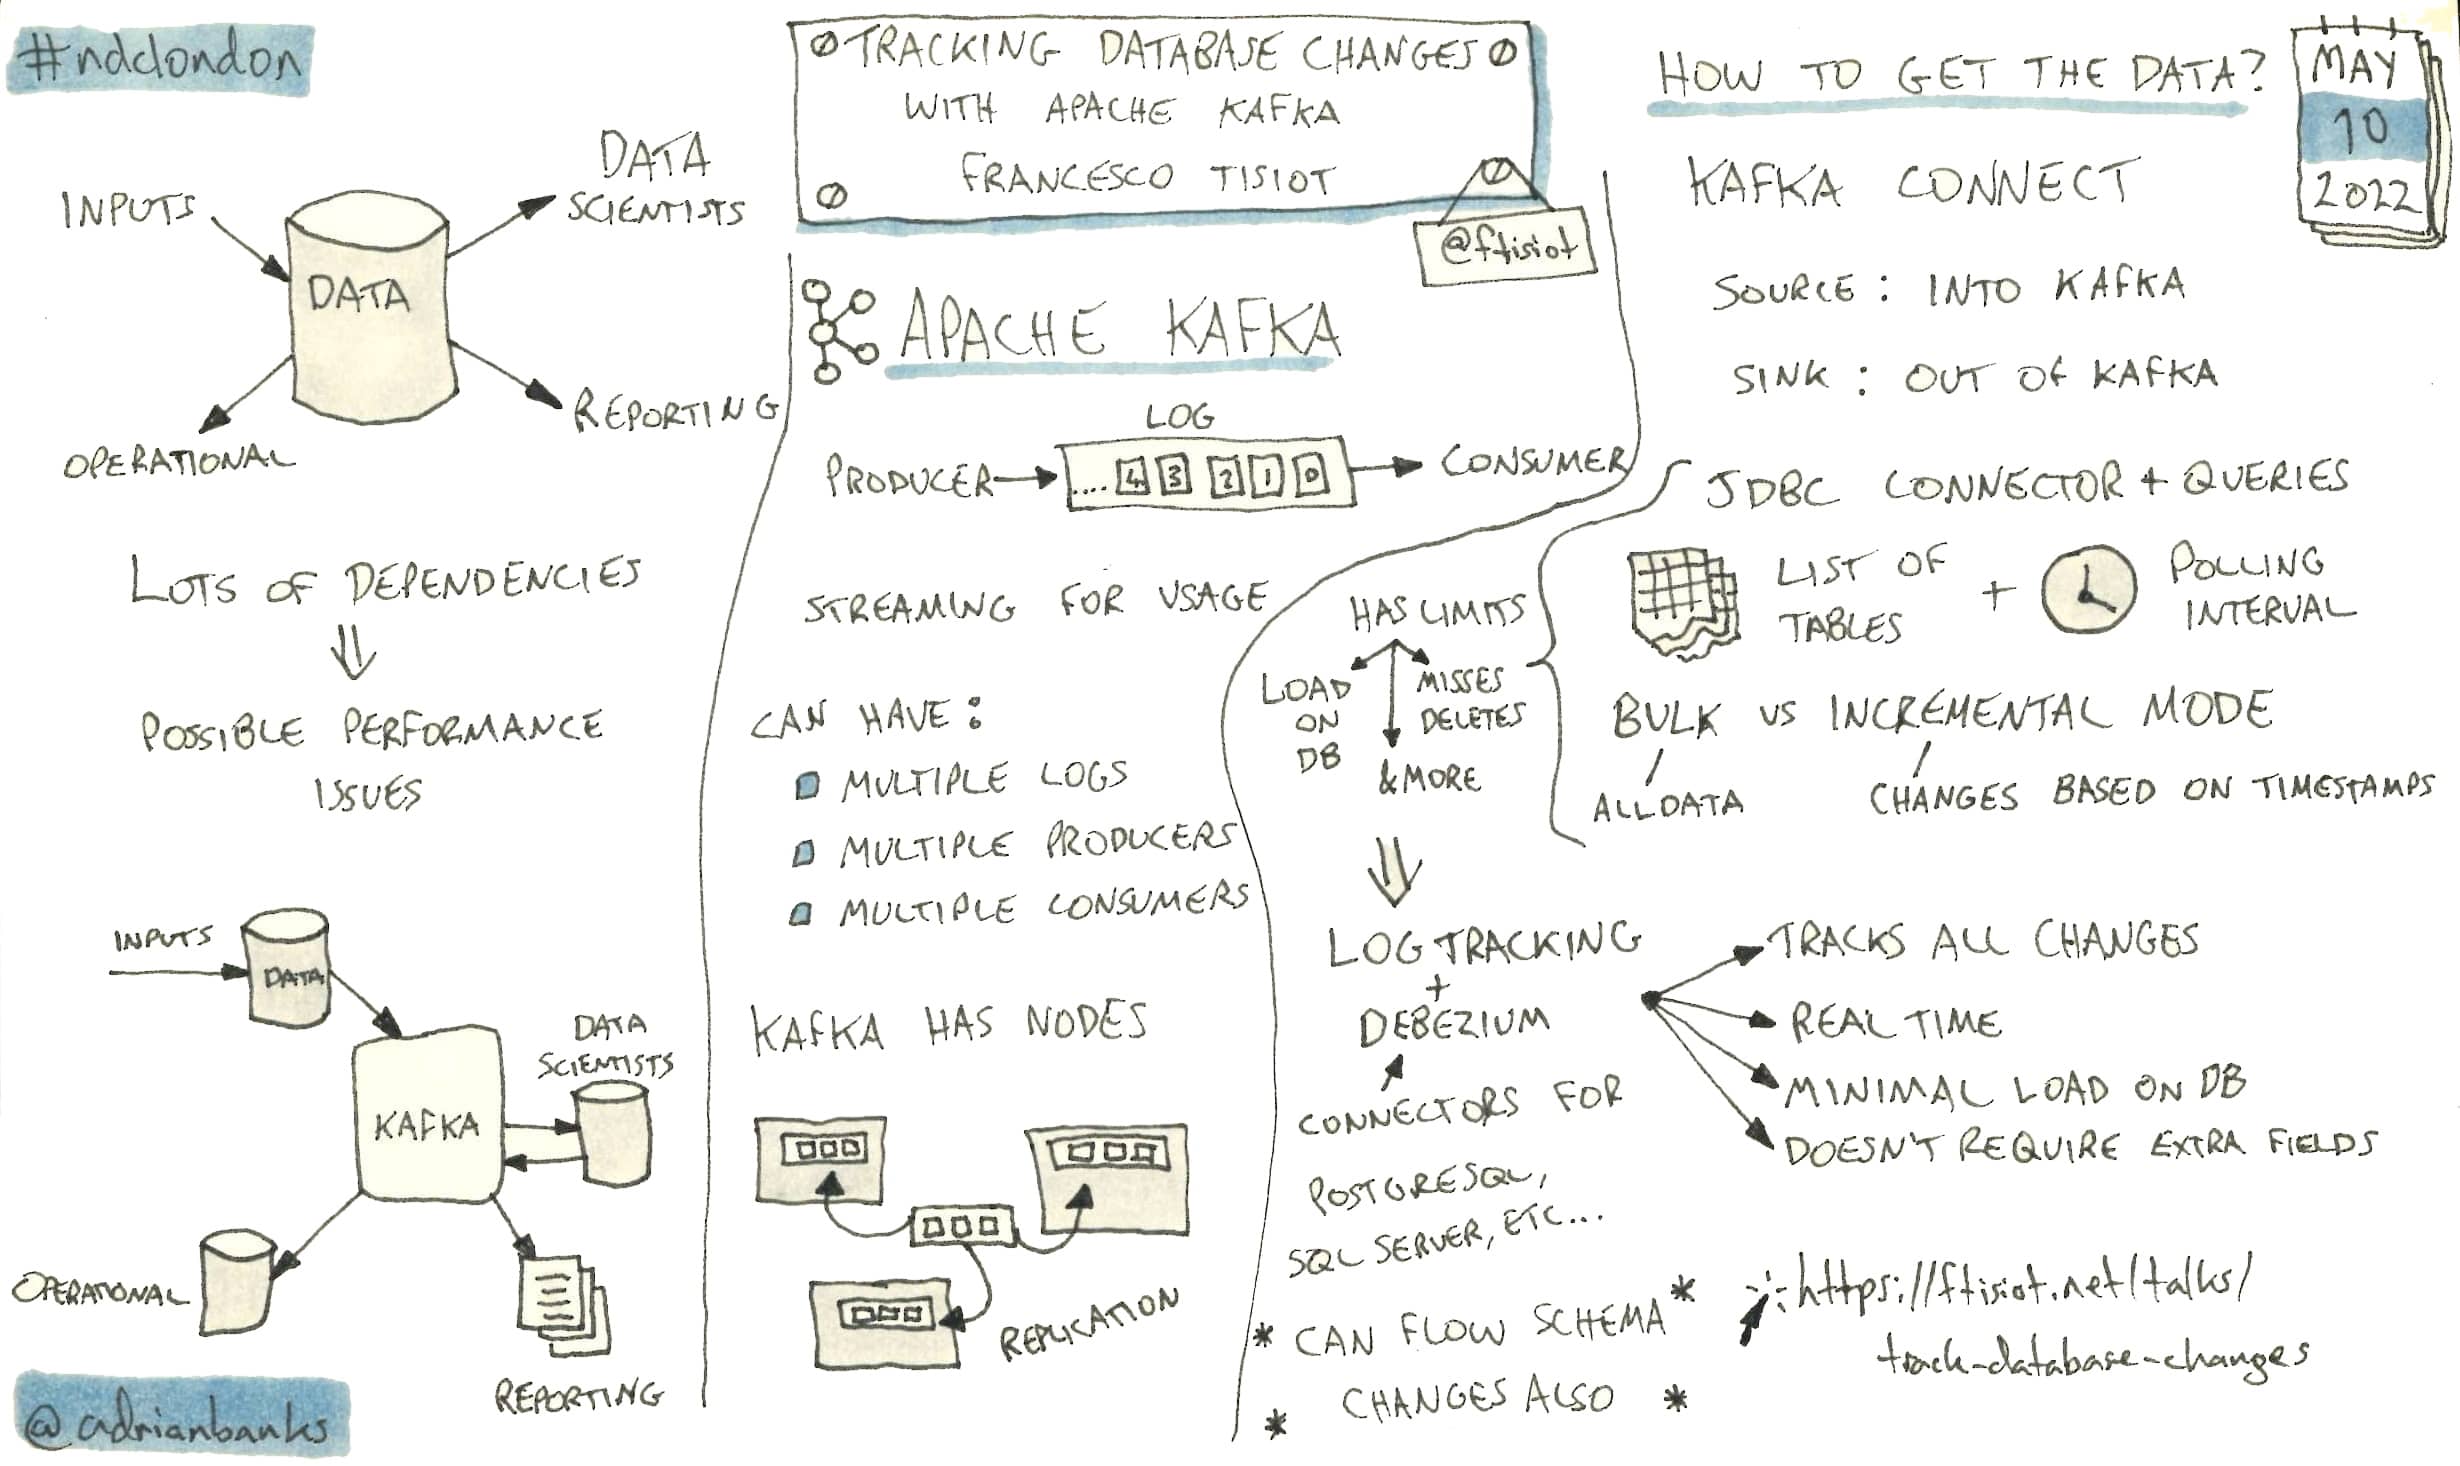 #ndclondon
TRACKING DATABASE CHANGES
WITH APACHE KAFKA
FRANCESCO TISIOT
@ftisiot
MAY
10
2022
INPUTS
DATA
SCIENTISTS
DATA
OPERATIONAL
REPORTING
LOTS OF DEPENDENCIES
POSSIBLE PERFORMANCE
ISSUES
INPUTS
DATA
KAFKA
DATA
SCIENTISTS
OPERATIONAL
REPORTING
@adrianbanks
APACHE KAFKA
LOG
PRODUCER
.... 4 3 2 1 0
CONSUMER
STREAMING FOR USAGE
CAN HAVE:
MULTIPLE LOGS
MULTIPLE PRODUCERS
MULTIPLE CONSUMERS
KAFKA HAS NODES
REPLICATION
HOW TO GET THE DATA?
KAFKA CONNECT
SOURCE: INTO KAFKA
SINK: OUT OF KAFKA
JDBC CONNECTOR + QUERIES
LIST OF
TABLES
+
POLLING
INTERVAL
BULK VS INCREMENTAL MODE
ALL DATA
CHANGES BASED ON TIMESTAMPS
HAS LIMITS
LOAD
ON
DB
MISSES
DELETES
& MORE
LOG TRACKING
+
DEBEZIUM
CONNECTORS FOR
POSTGRESQL,
SQL SERVER, ETC...
TRACKS ALL CHANGES
REAL TIME
MINIMAL LOAD ON DB
DOESN'T REQUIRE EXTRA FIELDS
* CAN FLOW SCHEMA *
* CHANGES ALSO *
https://ftisiot.net/talks/
track-database-changes